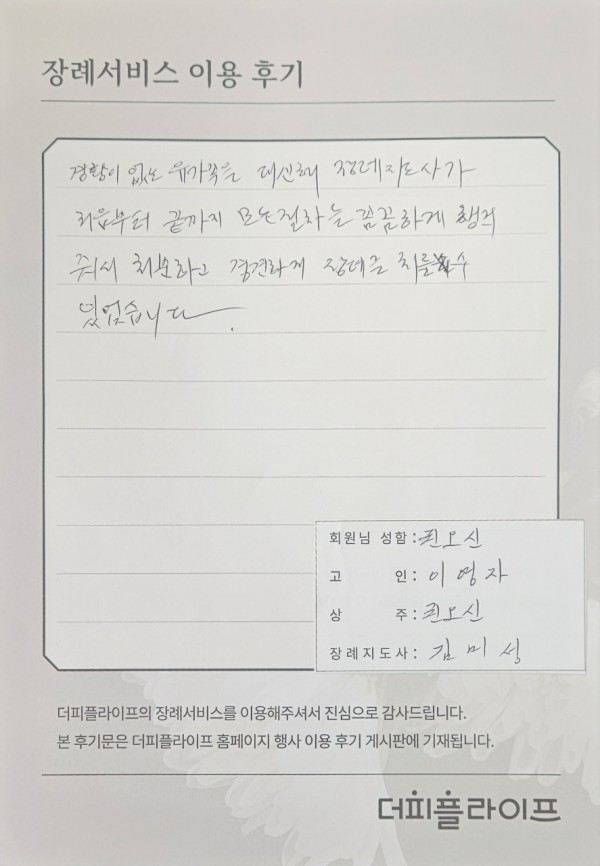 장례서비스 이용 후기
경황이 없는 유가족을 대신해 장례지도사가
처음부터 끝까지 모든절차를 꼼꼼하게 챙겨
줘서 차분하고 경견하게 장례를 치를 수
있었습니다.
회원님 성함 :
고 인 : 이영자
상 주 :
장례지도사 : 김미석
더피플라이프의 장례서비스를 이용해주셔서 진심으로 감사드립니다.
본 후기문은 더피플라이프 홈페이지 행사 이용 후기 게시판에 기재됩니다.
더피플라이프